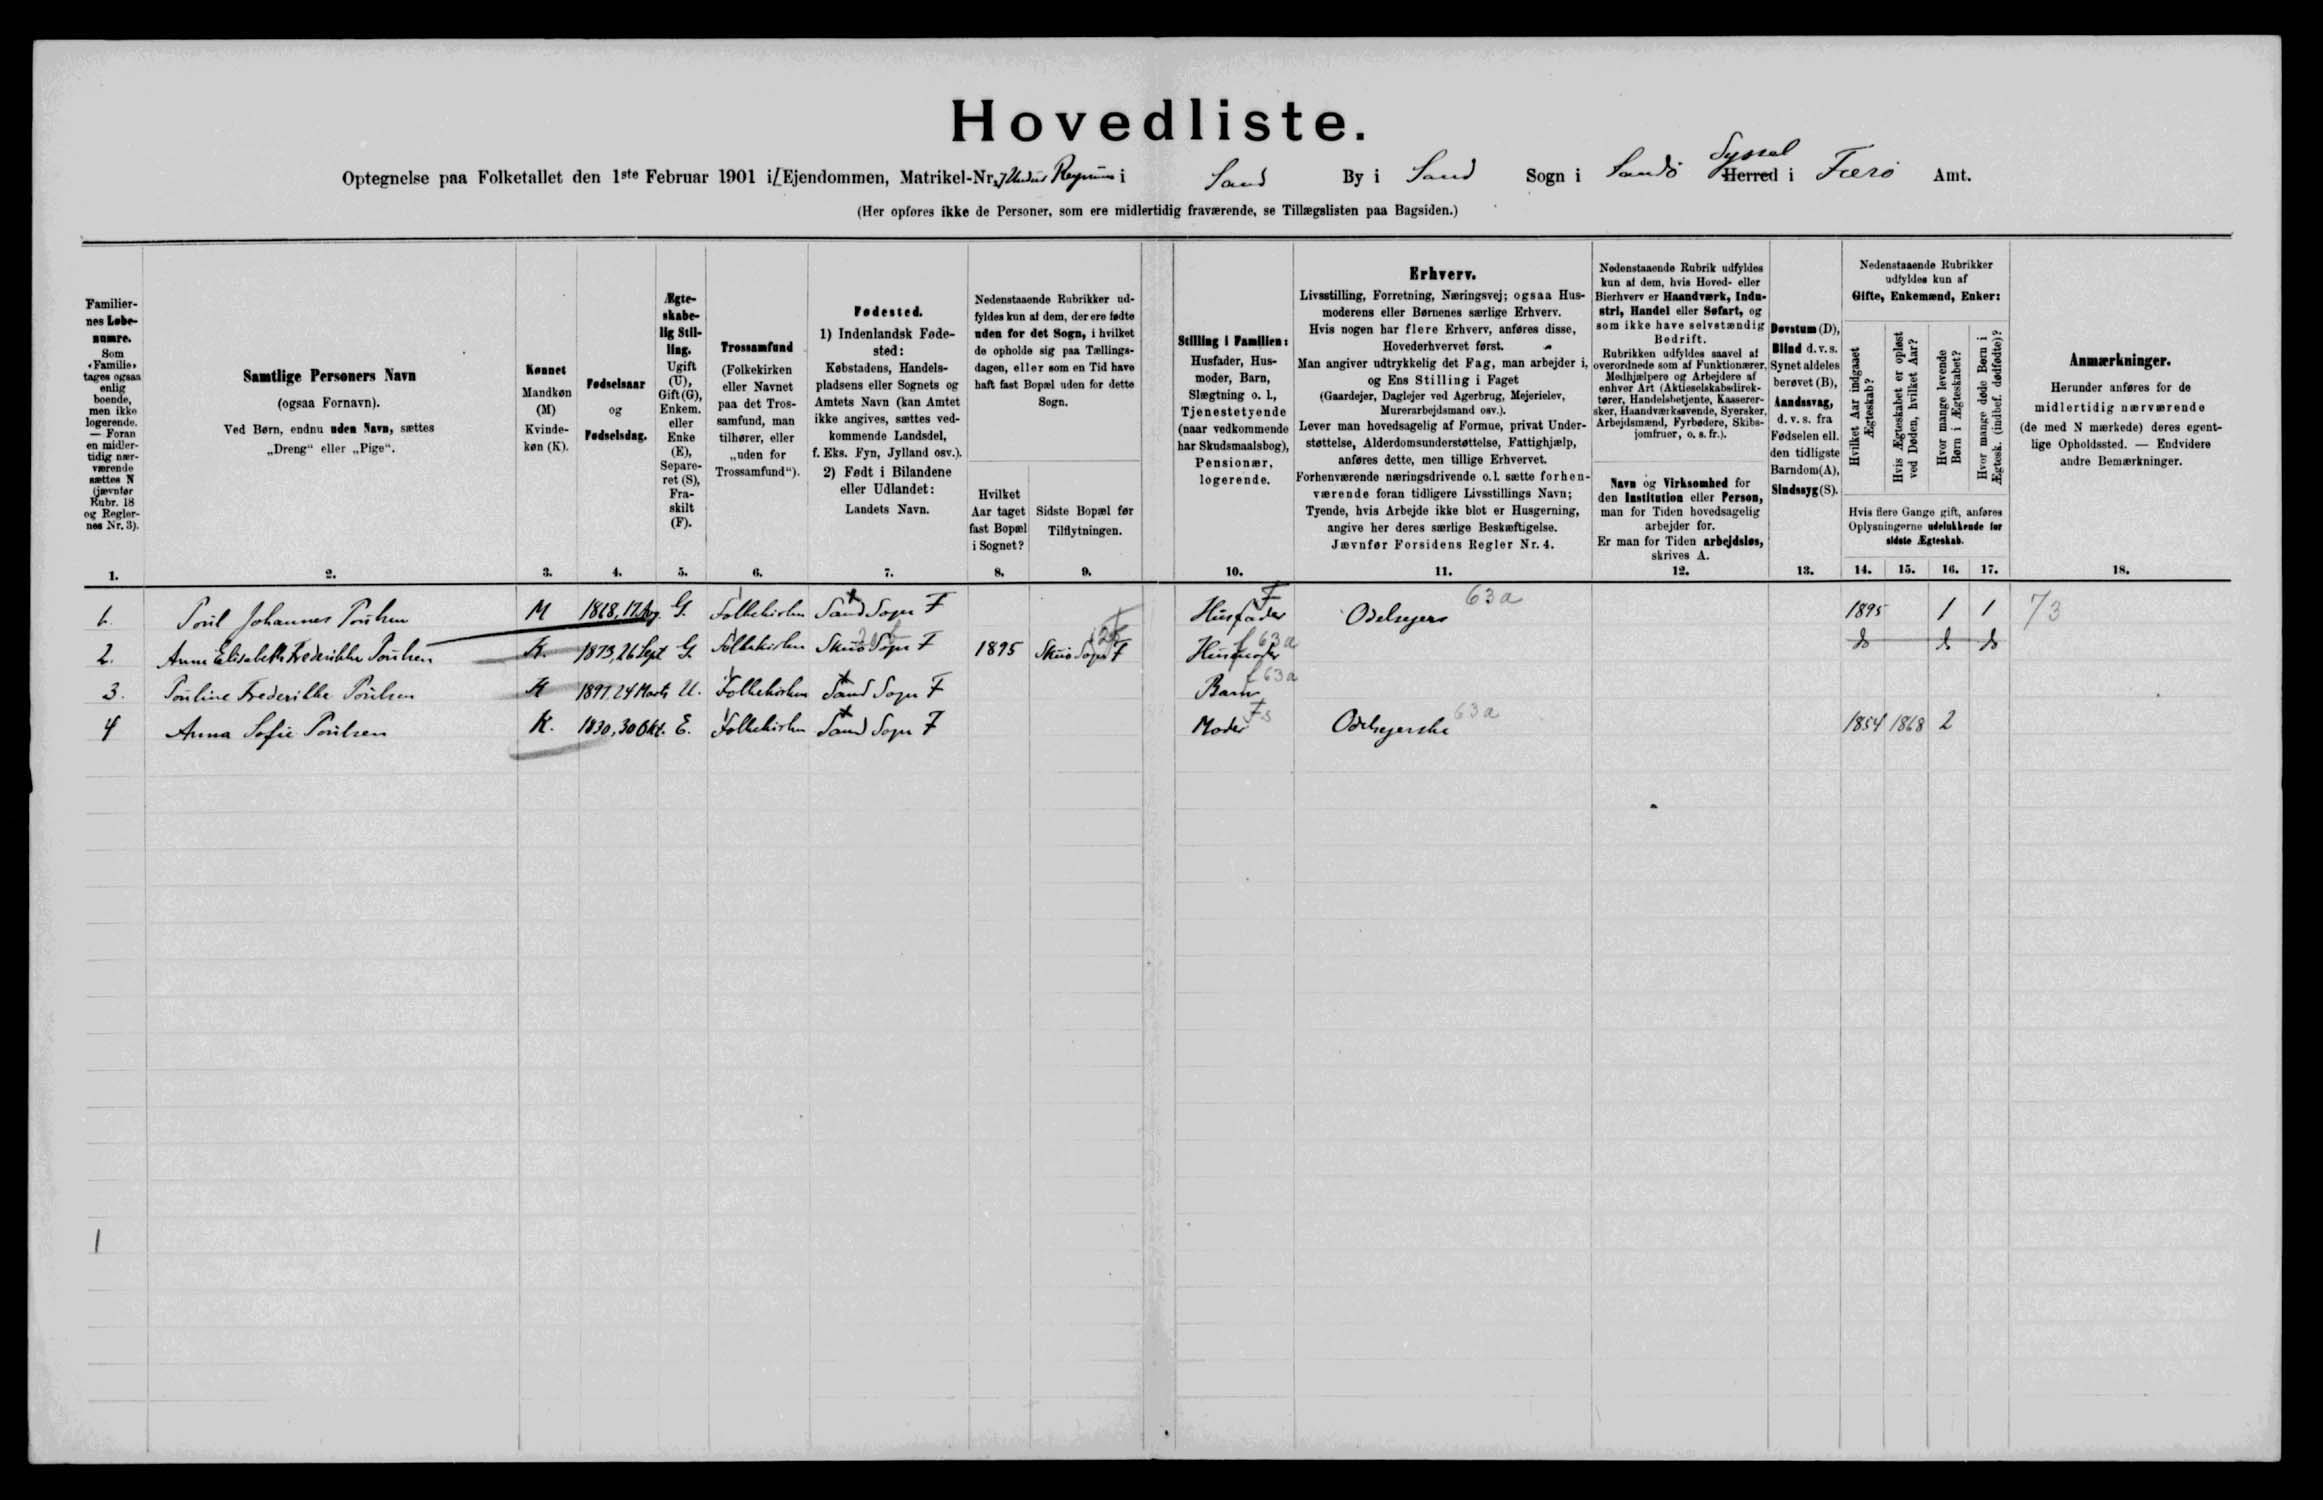 Hovedliste.
Optegnelse paa Folketallet den 1ste Februar 1901 i Ejendommen, Matrikel-Nr. i Sand By i Sand Sogn i Sandø Syssel Herred i Færø Amt.
(Her opføres ikke de Personer, som ere midlertidig fraværende, se Tillægslisten paa Bagsiden.)
Familier-
nes Løbe-
numre.
Som
«Familie»
tages ogsaa
enlig
boende,
men ikke
logerende.
— Foran
en midler-
tidig nær-
værende
sættes N
(jævnfør
Rubr. 18
og Regler-
nes Nr. 3).
Samtlige Personers Navn
(ogsaa Fornavn).
Ved Børn, endnu uden Navn, sættes
„Dreng“ eller „Pige“.
Kønnet
Mandkøn
(M)
Kvinde-
køn (K).
Fødselsaar
og
Fødselsdag.
Ægte-
skabe-
lig Stil-
ling.
Ugift
(U),
Gift (G),
Enkem.
eller
Enke
(E),
Separe-
ret (S),
Fra-
skilt
(F).
Trossamfund
(Folkekirken
eller Navnet
paa det Tros-
samfund, man
tilhører, eller
„uden for
Trossamfund“).
Fødested.
1) Indenlandsk Føde-
sted:
Købstadens, Handels-
pladsens eller Sognets og
Amtets Navn (kan Amtet
ikke angives, sættes ved-
kommende Landsdel,
f. Eks. Fyn, Jylland osv.).
2) Født i Bilandene
eller Udlandet:
Landets Navn.
Nedenstaaende Rubrikker ud-
fyldes kun af dem, der ere fødte
uden for det Sogn, i hvilket
de opholde sig paa Tællings-
dagen, eller som en Tid have
haft fast Bopæl uden for dette
Sogn.
Hvilket
Aar taget
fast Bopæl
i Sognet?
Sidste Bopæl før
Tilflytningen.
Stilling i Familien:
Husfader, Hus-
moder, Barn,
Slægtning o. l.,
Tjenestetyende
(naar vedkommende
har Skudsmaalsbog),
Pensionær,
logerende.
Erhverv.
Livsstilling, Forretning, Næringsvej; ogsaa Hus-
moderens eller Børnenes særlige Erhverv.
Hvis nogen har flere Erhverv, anføres disse,
Hovederhvervet først.
Man angiver udtrykkelig det Fag, man arbejder i,
og Ens Stilling i Faget
(Gaardejer, Daglejer ved Agerbrug, Mejerielev,
Murerarbejdsmand osv.).
Lever man hovedsagelig af Formue, privat Under-
støttelse, Alderdomsunderstøttelse, Fattighjælp,
anføres dette, men tillige Erhvervet.
Forhenværende næringsdrivende o. l. sætte forhen-
værende foran tidligere Livsstillings Navn;
Tyende, hvis Arbejde ikke blot er Husgerning,
angive her deres særlige Beskæftigelse.
Jævnfør Forsidens Regler Nr. 4.
Nedenstaaende Rubrik udfyldes
kun af dem, hvis Hoved- eller
Bierhverv er Haandværk, Indu-
stri, Handel eller Søfart, og
som ikke have selvstændig
Bedrift.
Rubrikken udfyldes saavel af
overordnede som af Funktionærer,
Medhjælpere og Arbejdere af
enhver Art (Aktieselskabsdirek-
tører, Handelsbetjente, Kasserer-
sker, Haandværkssvende, Syersker,
Arbejdsmænd, Fyrbødere, Skibs-
jomfruer, o. s. fr.).
Navn og Virksomhed for
den Institution eller Person,
man for Tiden hovedsagelig
arbejder for.
Er man for Tiden arbejdsløs,
skrives A.
Døvstum (D),
Blind d. v. s.
Synet aldeles
berøvet (B),
Aandssvag,
d. v. s. fra
Fødselen ell.
den tidligste
Barndom (A),
Sindssyg (S).
Nedenstaaende Rubrikker
udfyldes kun af
Gifte, Enkemænd, Enker:
Hvilket Aar indgaaet
Ægteskab?
Hvis Ægteskabet er opløst
ved Døden, hvilket Aar?
Hvor mange levende
Børn i Ægteskabet?
Hvor mange døde Børn i
Ægtesk. (indbef. dødfødte)?
Hvis flere Gange gift, anføres
Oplysningerne udelukkende for
sidste Ægteskab.
Anmærkninger.
Herunder anføres for de
midlertidig nærværende
(de med N mærkede) deres egent-
lige Opholdssted. — Endvidere
andre Bemærkninger.
1. 2. 3. 4. 5. 6. 7. 8. 9. 10. 11. 12. 13. 14. 15. 16. 17. 18.
1. Poul Johannes Poulsen M 1868, 17. Aug. G. Folkekirken Sand Sogn F Husfader F Odelsejer 63a 1895 1 1 73
2. Anne Elisabeth Frederikke Poulsen K. 1873, 26 Sept G. Folkekirken Skuø Sogn F 1895 Skuø Sogn F Husmoder f 63a do do do
3. Pouline Frederikke Poulsen K 1897. 24 Marts U. Folkekirken Sand Sogn F Barn f 63a
4 Anna Sofie Poulsen K. 1830, 30 Okt. E. Folkekirken Sand Sogn F Moder Fs Odelsejerske 63a 1854 1868 2
1